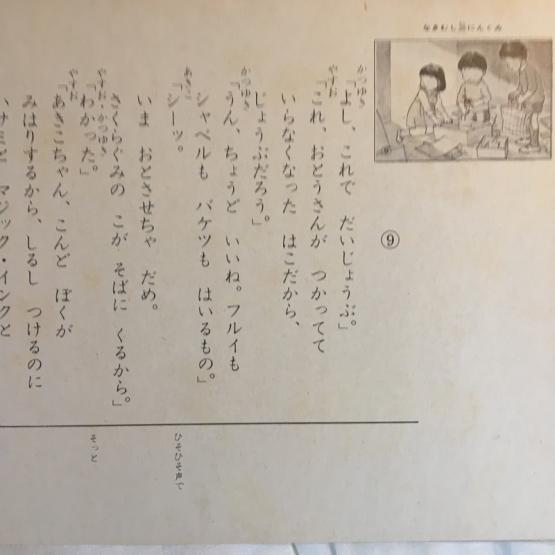 ⑨
かつゆき
「よし、これで　だいじょうぶ」。
やすだ
「これ、おとうさんが　つかってて
いらなくなった　はこだから、
じょうぶだろう」。
かつゆき
「うん、ちょうど　いいね。フルイも
シャベルも　バケツも　はいるもの」。
あきこ
「シーッ。
いま　おとさせちゃ　だめ。
さくらぐみの　こが　そばに　くるから」。
やすだ・かつゆき
「わかった」。
やすだ
「あきこちゃん、こんど　ぼくが
みはりするから、しるし　つけるのに
マジック・インクと
ひそひそ声で
そっと